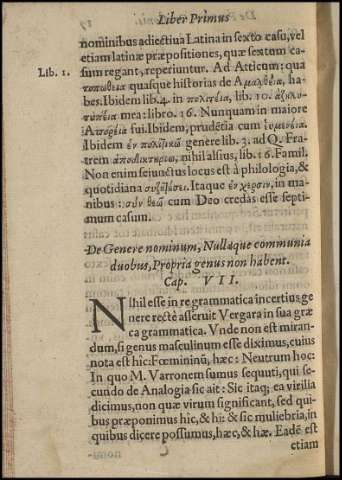 Liber Primus
nominibus adiectiua Latina in sexto casu, vel
etiam latinæ præpositiones, quæ sextum ca-
Lib. 1. sum regant, reperiuntur. Ad Atticum: qua
τοποθεσία quasque historias de Αμαλθέια, ha-
bes. Ibidem lib. 4. in πολιτέια, lib. 10.
mea: libro. 16. Nunquam in maiore
Απορέια fui. Ibidem; prudẽtia cum
Ibidem ἐν πολιτικῶ genere lib. 3. ad Q. Fra-
trem nihil alsius, lib. 16. Famil.
Non enim seiunctus locus est à philologia, &
quotidiana συζητήσει. Itaque ἐν χερσιν, in ma-
nibus: σὺν θεῶ cum Deo credas esse septi-
mum casum.
De Genere nominum, Nullaque communia
duobus, Propria genus non habent.
Cap. VII.
NIhil esse in re grammatica incertius ge
nere rectè asseruit Vergara in sua græ
ca grammatica. Vnde non est miran-
dum, si genus masculinum esse diximus, cuius
nota est hic: Fœmininũ, hæc: Neutrum hoc:
In quo M. Varronem sumus sequuti, qui se-
cundo de Analogia sic ait: Sic itaq; ea virilia
dicimus, non quæ virum significant, sed qui-
bus præponimus hic, & hi: & sic muliebria, in
quibus dicere possumus, hæc, & hæ. Eadẽ est
etiam